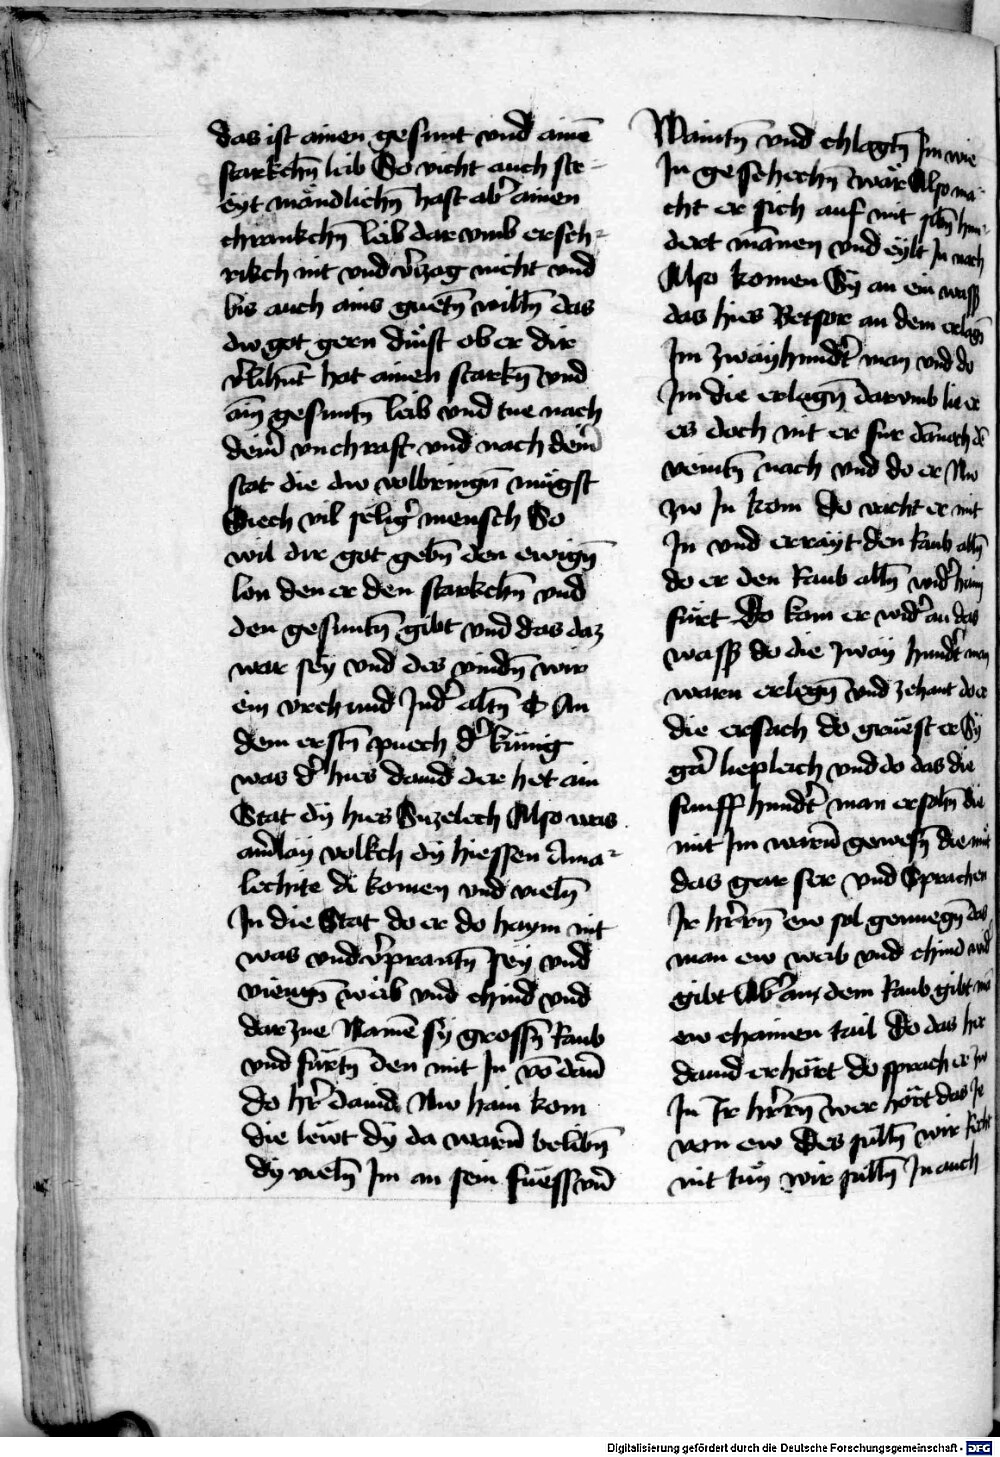 das ist ainen gesunt vnd ainē
starkchn̄ leib So vicht auch ste-
eyt mändlichn̄ hast ab̉ ainen
chrankchn̄ leib dar vmb ersch-
rikch nit vnd v̉zag nicht vnd
bis auch ains guetn̄ willn̄ das
dw got gern duͤst ob er dir
v̉lihnt̄ hat ainen starkn̄ vnd
ain̄ gesuntn̄ leib vnd tue nach
deim̄ vnchraft vnd nach deim̄
stat die dw volbringn̄ muͤgst
Siech vil selig̉ mensch So
wil dir got gebn̄ den ewign̄
lon den er den starkchn̄ vnd
den gesuntn̄ gibt vnd das daz
war sey vnd des vindn̄ wir
ein vrchund Jn d̉ altn̄ ¶ An
dem erstn̄ puech d̉ künig
was d̉ hies dauid der het ain
Stat dy hies Sizelech Also was
ain̉lay volkch dy hiessen Ama-
lechite di komen vnd vieln̄
Jn die Stat do er do haym nit
was vnd v̉prantn̄ sey vnd
viengn̄ weib vnd chind vnd
dar zue Namē sy grossn̄ Raub
vnd fürtn̄ den mit Jn vō dan̄
do hr̉ dauid Nw haim kom
die leẅt dy da warn̄ belibn̄
dy vieln̄ Jm an sein füess vn̄
Waintn̄ vnd chlagtn̄ Jm wie
Jn geschechn̄ wär Also ma-
cht er sich auf mit sechs hun-
dert mannen vnd eylt Jn nach
Also komen Sy an ein wass̉
das hies Betsor an dem erlagn̄
Jm zwayhundt̉ man vnd do
Jm die erlagn̄ darvmb lie er
es doch nit er fur dannoch dē
veintn̄ nach vnd do er Nw
zw Jn kom Do vacht er mit
Jn vnd errayt den Raub alln̄
do er den Raub alln̄ wid̉ haim
fürt Do kam er wid̉ an das
wass̉ do die zway hundt̉ man
warn erlegn̄ vnd zehant do er
die ersach do gruest er Sy
gar̄ liepleich vnd do das die
funff hundt̉ man ersahn̄ die
mit Jm warn̄ gewesn̄ die müt
das gar ser vnd Sprachen
Jr hr̉rn̄ ew sol genuegn̄ das
man ew weib vnd chind wid̉
gibt Ab̉ aus dem Raub gibt mā
ew chainen tail Do das her
dauid erhört do sprach er zw
Jn Jr hr̉rn̄ wer hört das Je
von ew Des sulln̄ wir Recht
nit tun wir sulln̄ Jn auch